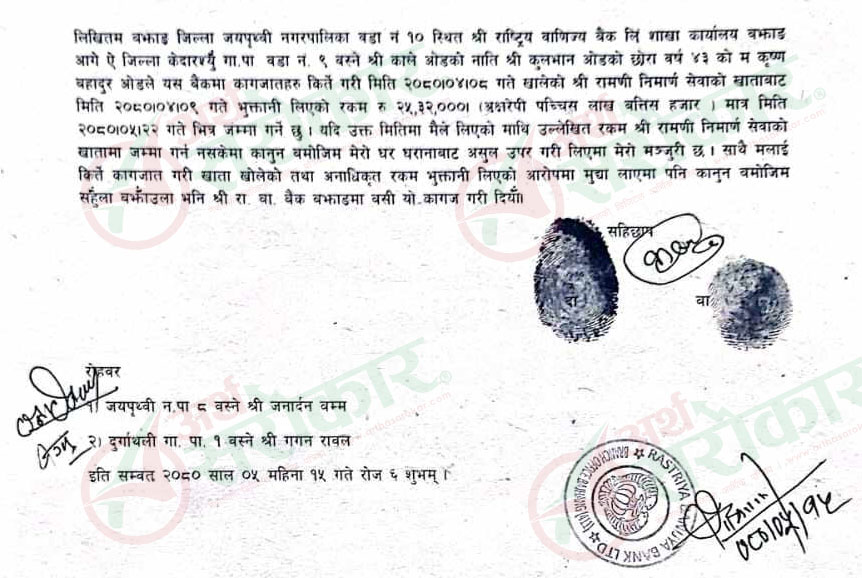 लिखितम बझाङ जिल्ला जयपृथ्वी नगरपालिका वडा नं १० स्थित श्री राष्ट्रिय वाणिज्य बैक लि शाखा कार्यालय बझाङ
आगे ऐ जिल्ला केदारश्यु गा.पा वडा नं. ९ वस्ने श्री काले ओडको नाति श्री कुलभान ओडको छोरा वर्ष ४३ को म कृष्ण
बहादुर ओडले यस बैकमा कागजातहरु किर्ते गरी मिति २०८०।०४।०८ गते खालेको श्री रामणी निमार्ण सेवाको खाताबाट
मिति २०८०।०४।०९ गते भुक्तानी लिएको रकम रु २५,३२,०००। (अक्षरेपी पच्चिस लाख बत्तिस हजार ) मात्र मिति
२०८०।०५।२२ गते भित्र जम्मा गर्ने छु । यदि उक्त मितिमा मैले लिएको माथि उल्लेखित रकम श्री रामणी निमार्ण सेवाको
खातामा जम्मा गर्न नसकेमा कानुन बमोजिम मेरो घर घरानाबाट असुल उपर गरी लिएमा मेरो मञ्जुरी छ । साथै मलाई
किर्ते कागजात गरी खाता खोलेको तथा अनाधिकृत रकम भुक्तानी लिएको आरोपमा मुद्या लाएमा पनि कानुन बमोजिम
सहुँला बुझाँउला भनि श्री रा. वा. बैक बझाङमा बसी यो कागज गरी दियाँ।
सहिछाप
दा
बा
रोहवर
१) जयपृथ्वी न.पा ८ वस्ने श्री जनार्दन वम्म
२) दुर्गाथली गा. पा. १ वस्ने श्री गगन रावल
इति सम्वत २०८० साल ०५ महिना १५ गते रोज ६ शुभम् ।
RASTRIYA BANIJYA BANK LTD
०८०।०५।१५
अर्थ सरोकार